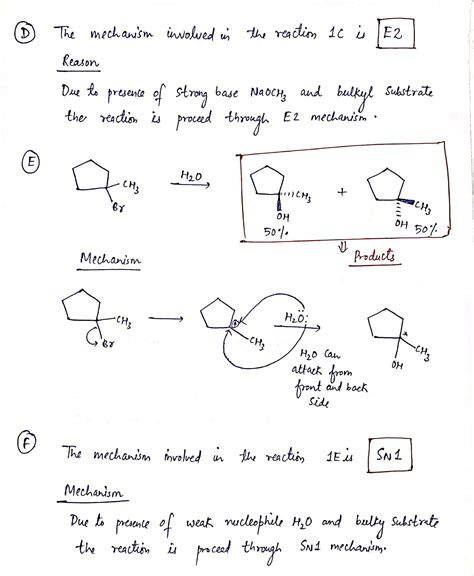 D The mechanism involved in the reaction 1C is E2
Reason
Due to presence of strong base NaOCH3 and bulkyl substrate
the reaction is proceed through E2 mechanism.
E
CH3 Br H2O CH3 OH 50% + CH3 OH 50%
Products
Mechanism
CH3 Br ⊕ CH3 H2Ö: * CH3 OH
H2O can
attack from
front and back
side
F
The mechanism involved in the reaction 1E is SN1
Mechanism
Due to presence of weak nucleophile H2O and bulky substrate
the reaction is proceed through SN1 mechanism.